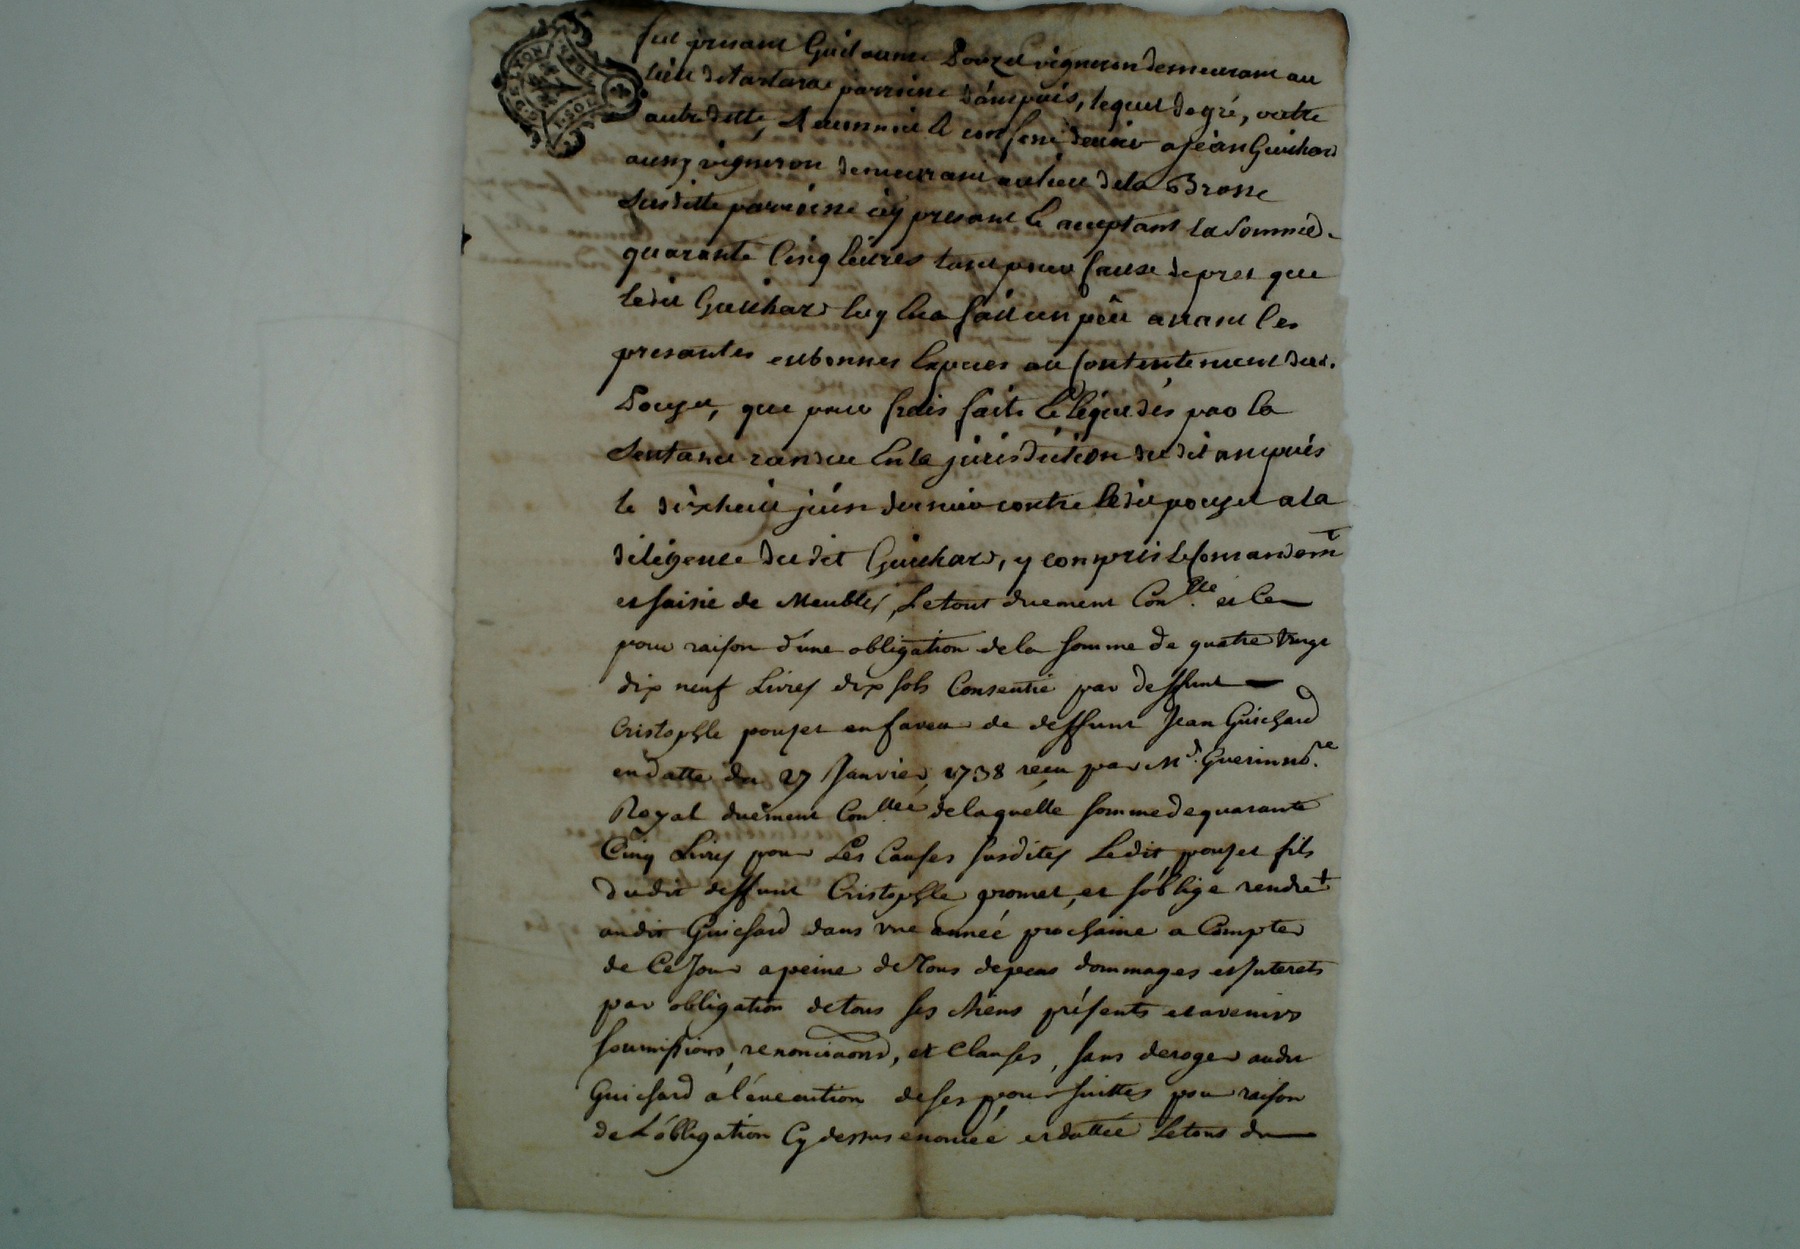 GEN. DE LYON
fut presant Guilaume Pouzet vigneron demeurant au
lieu de Tartara parroisse d'ampuis, lequel de gré, oultre
aubeditte, A reconnu et confessé devoir a Jean Guichard
aussy vigneron demeurant au lieu de la Brosse
susditte parroisse icy presant et acceptant la somme de
quarante Cinq livres tant pour cause de pret que
ledit Guichard luy en a fait un peu avant les
presantes en bonnes Especes au contentement dudt.
Pouzet, que pour frais faits et liquidés par la
Sentance randue En la jurisdiction du dit ampuis
le dixhuit juin dernier contre ledit pouzet a la
diligence du dit Guichard, y compris le comandemt
et saisie de Meubles, Le tout duement Conllé et Ce
pour raison d'une obligation de la somme de quatre vingt
dix neuf Livres dix sols Consentie par deffunt
Cristophle pouzet en faveur de deffunt Jean Guichard
en datte du 27 Janvier 1738 reçu par Me. Guerin no.re
Royal duëment Conllée de laquelle somme de quarante
Cinq Livres pour Les Causes susdites Ledit pouzet fils
dudit deffunt Cristophle promet, et s'oblige rendre +
audit Guichard dans une année prochaine a Compter
de Ce Jour a peine de Tous depens dommages et Interets
par obligation de tous ses biens présents et avenirs
soumissions, renonciaons, et Clauses, sans deroger audit
Guichard a l'éxecution de ses poursuittes pour raison
de L'óbligation Cy dessus enoncée et dattée Le tout du